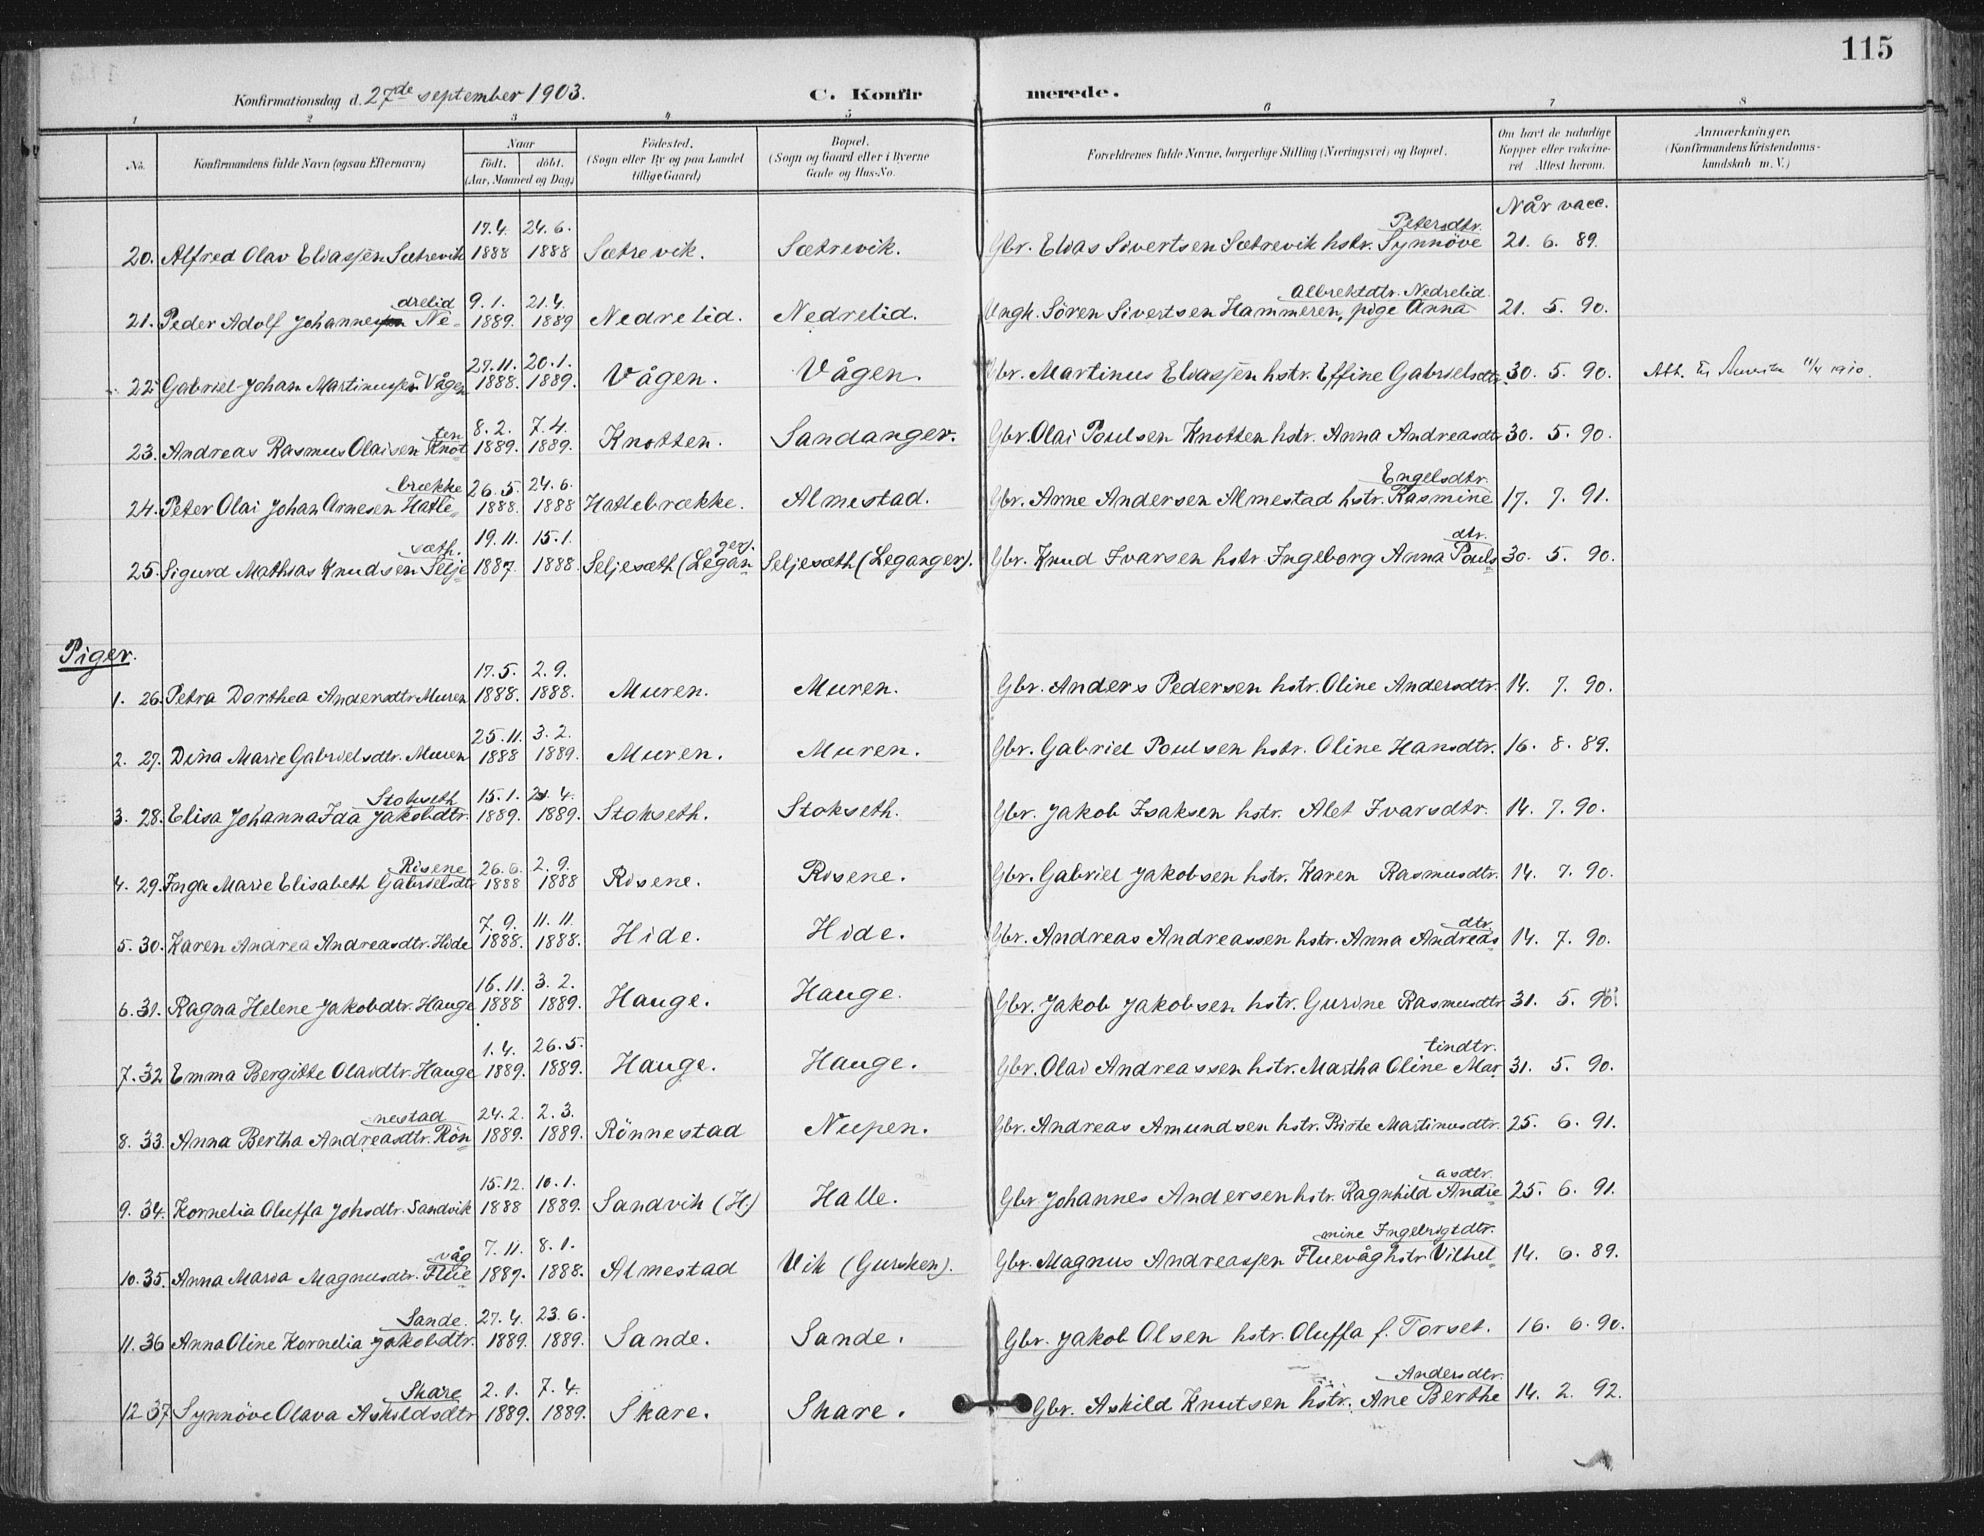 115
Konfirmationsdag d. 27de september 1903. C. Konfirmerede.
1 2 3 4 5 6 7 8
No. Konfirmandens fulde Navn (ogsaa Efternavn) Naar født. døbt. (Aar, Maaned og Dag) Fødested. (Sogn eller By og paa Landet tillige Gaard) Bopæl. (Sogn og Gaard eller i Byerne Gade og Hus-No. Forældrenes fulde Navne, borgerlige Stilling (Næringsvei) og Bopæl. Om havt de naturlige Kopper eller vaccineret Attest herom. Anmærkninger. (Konfirmandens Kristendomskundskab m. V.)
Når vacc.
20. Alfred Olav Eliassen Sætrevik 17.4. 1888 24.6. 1888 Sætrevik. Sætrevik. Gbr. Elias Sivertsen Sætrevik hstr. Synnöve Petersdtr. 21. 6. 89.
21. Peder Adolf Johannessen Nedrelid 9.1. 1889. 21.4. 1889 Nedrelid. Nedrelid. Ungk. Sören Sivertsen Hammeren, pige Anna Albrektdtr. Nedrelid. 21. 5. 90.
22 Gabriel Johan Martinussen Vågen 27.11. 1888. 20.1. 1889. Vågen. Vågen. Gbr. Martinus Eliassen hstr. Effine Gabrielsdtr. 30. 5. 90.
23. Andreas Rasmus Olaisen Knotten 8.2. 1889. 7.4. 1889. Knotten. Sandanger. Gbr. Olai Poulsen Knotten hstr. Anna Andreasdtr 30. 5. 90.
24. Peter Olai Johan Arnesen Hatlebrække 26.5. 1888. 24.6. 1888 Hatlebrække. Almestad. Gbr. Arne Andersen Almestad hstr. Rasmine Engelsdtr. 17. 7. 91.
25. Sigurd Mathias Knudsen Seljesæth. 19.11. 1887. 15.1. 1888. Seljesæth (Leganger). Seljesæth (Leganger). Gbr. Knud Ivarsen hstr Ingeborg Anna Poulsdtr. 30. 5. 90.
Piger.
1. 26. Petra Dorthea Andersdtr Muren 17.5. 1888. 2.9. 1888. Muren. Muren. Gbr. Anders Pedersen hstr. Oline Andersdtr. 14. 7. 90.
2. 27. Dina Marie Gabrielsdtr. Muren 25.11. 1888 3.2. 1889. Muren. Muren. Gbr. Gabriel Poulsen hstr. Oline Hansdtr. 16. 8. 89.
3. 28. Elisa Johanna Ida Jakobdtr. Stokseth 15.1. 1889. 21.4. 1889. Stokseth. Stokseth. Gbr. Jakob Isaksen hstr. Alet Ivarsdtr. 14. 7. 90.
4. 29. Inga Marie Elisabeth Gabrielsdtr Risene 26.6. 1888 2.9. 1888 Risene. Risene. Gbr. Gabriel Jakobsen hstr. Karen Rasmusdtr. 14. 7. 90.
5. 30. Karen Andrea Andreasdtr. Hide 7.9. 1888. 11.11. 1888. Hide. Hide. Gbr. Andreas Andreassen hstr. Anna Andreasdtr. 14. 7. 90.
6. 31. Ragna Helene Jakobdtr. Hauge 16.11. 1888 3.2. 1889. Hauge. Hauge. Gbr. Jakob Jakobsen hstr. Gurine Rasmusdtr 31. 5. 90.
7. 32 Emma Bergitte Olaidtr. Hauge 1.4. 1889. 26.5. 1889. Hauge. Hauge. Gbr. Olai Andreassen hstr. Martha Oline Martindtr. 31. 5. 90.
8. 33. Anna Bertha Andreasdtr. Rönnestad 24.2. 1889. 2.3. 1889. Rönnestad Nupen. Gbr. Andreas Amundsen hstr. Birte Martinusdtr. 25. 6. 91.
9. 34. Kornelia Oluffa Johsdtr. Sandvik 15.12. 1888 10.1. 1889. Sandvik (H) Halle. Gbr Johannes Andersen hstr. Ragnhild Andreasdtr. 25. 6. 91.
10. 35. Anna Maria Magnusdtr. Fluevåg 7.11. 1887. 8.1. 1888. Almestad Vik (Gursken). Gbr. Magnus Andreassen Fluevåg hstr. Vilhelmine Ingebrigtdtr. 14. 6. 89.
11. 36 Anna Oline Kornelia Jakobdtr. Sande. 27.4. 1889. 23.6. 1889. Sande. Sande. Gbr. Jakob Olsen hstr. Oluffa f. Torset. 16. 6. 90.
12 37 Synnöve Olava Askildsdtr Skare 2.1. 1889. 7.4. 1889. Skare. Skare. Gbr. Askild Knutsen hstr. Ane Berthe Andersdtr. 14. 2. 92.